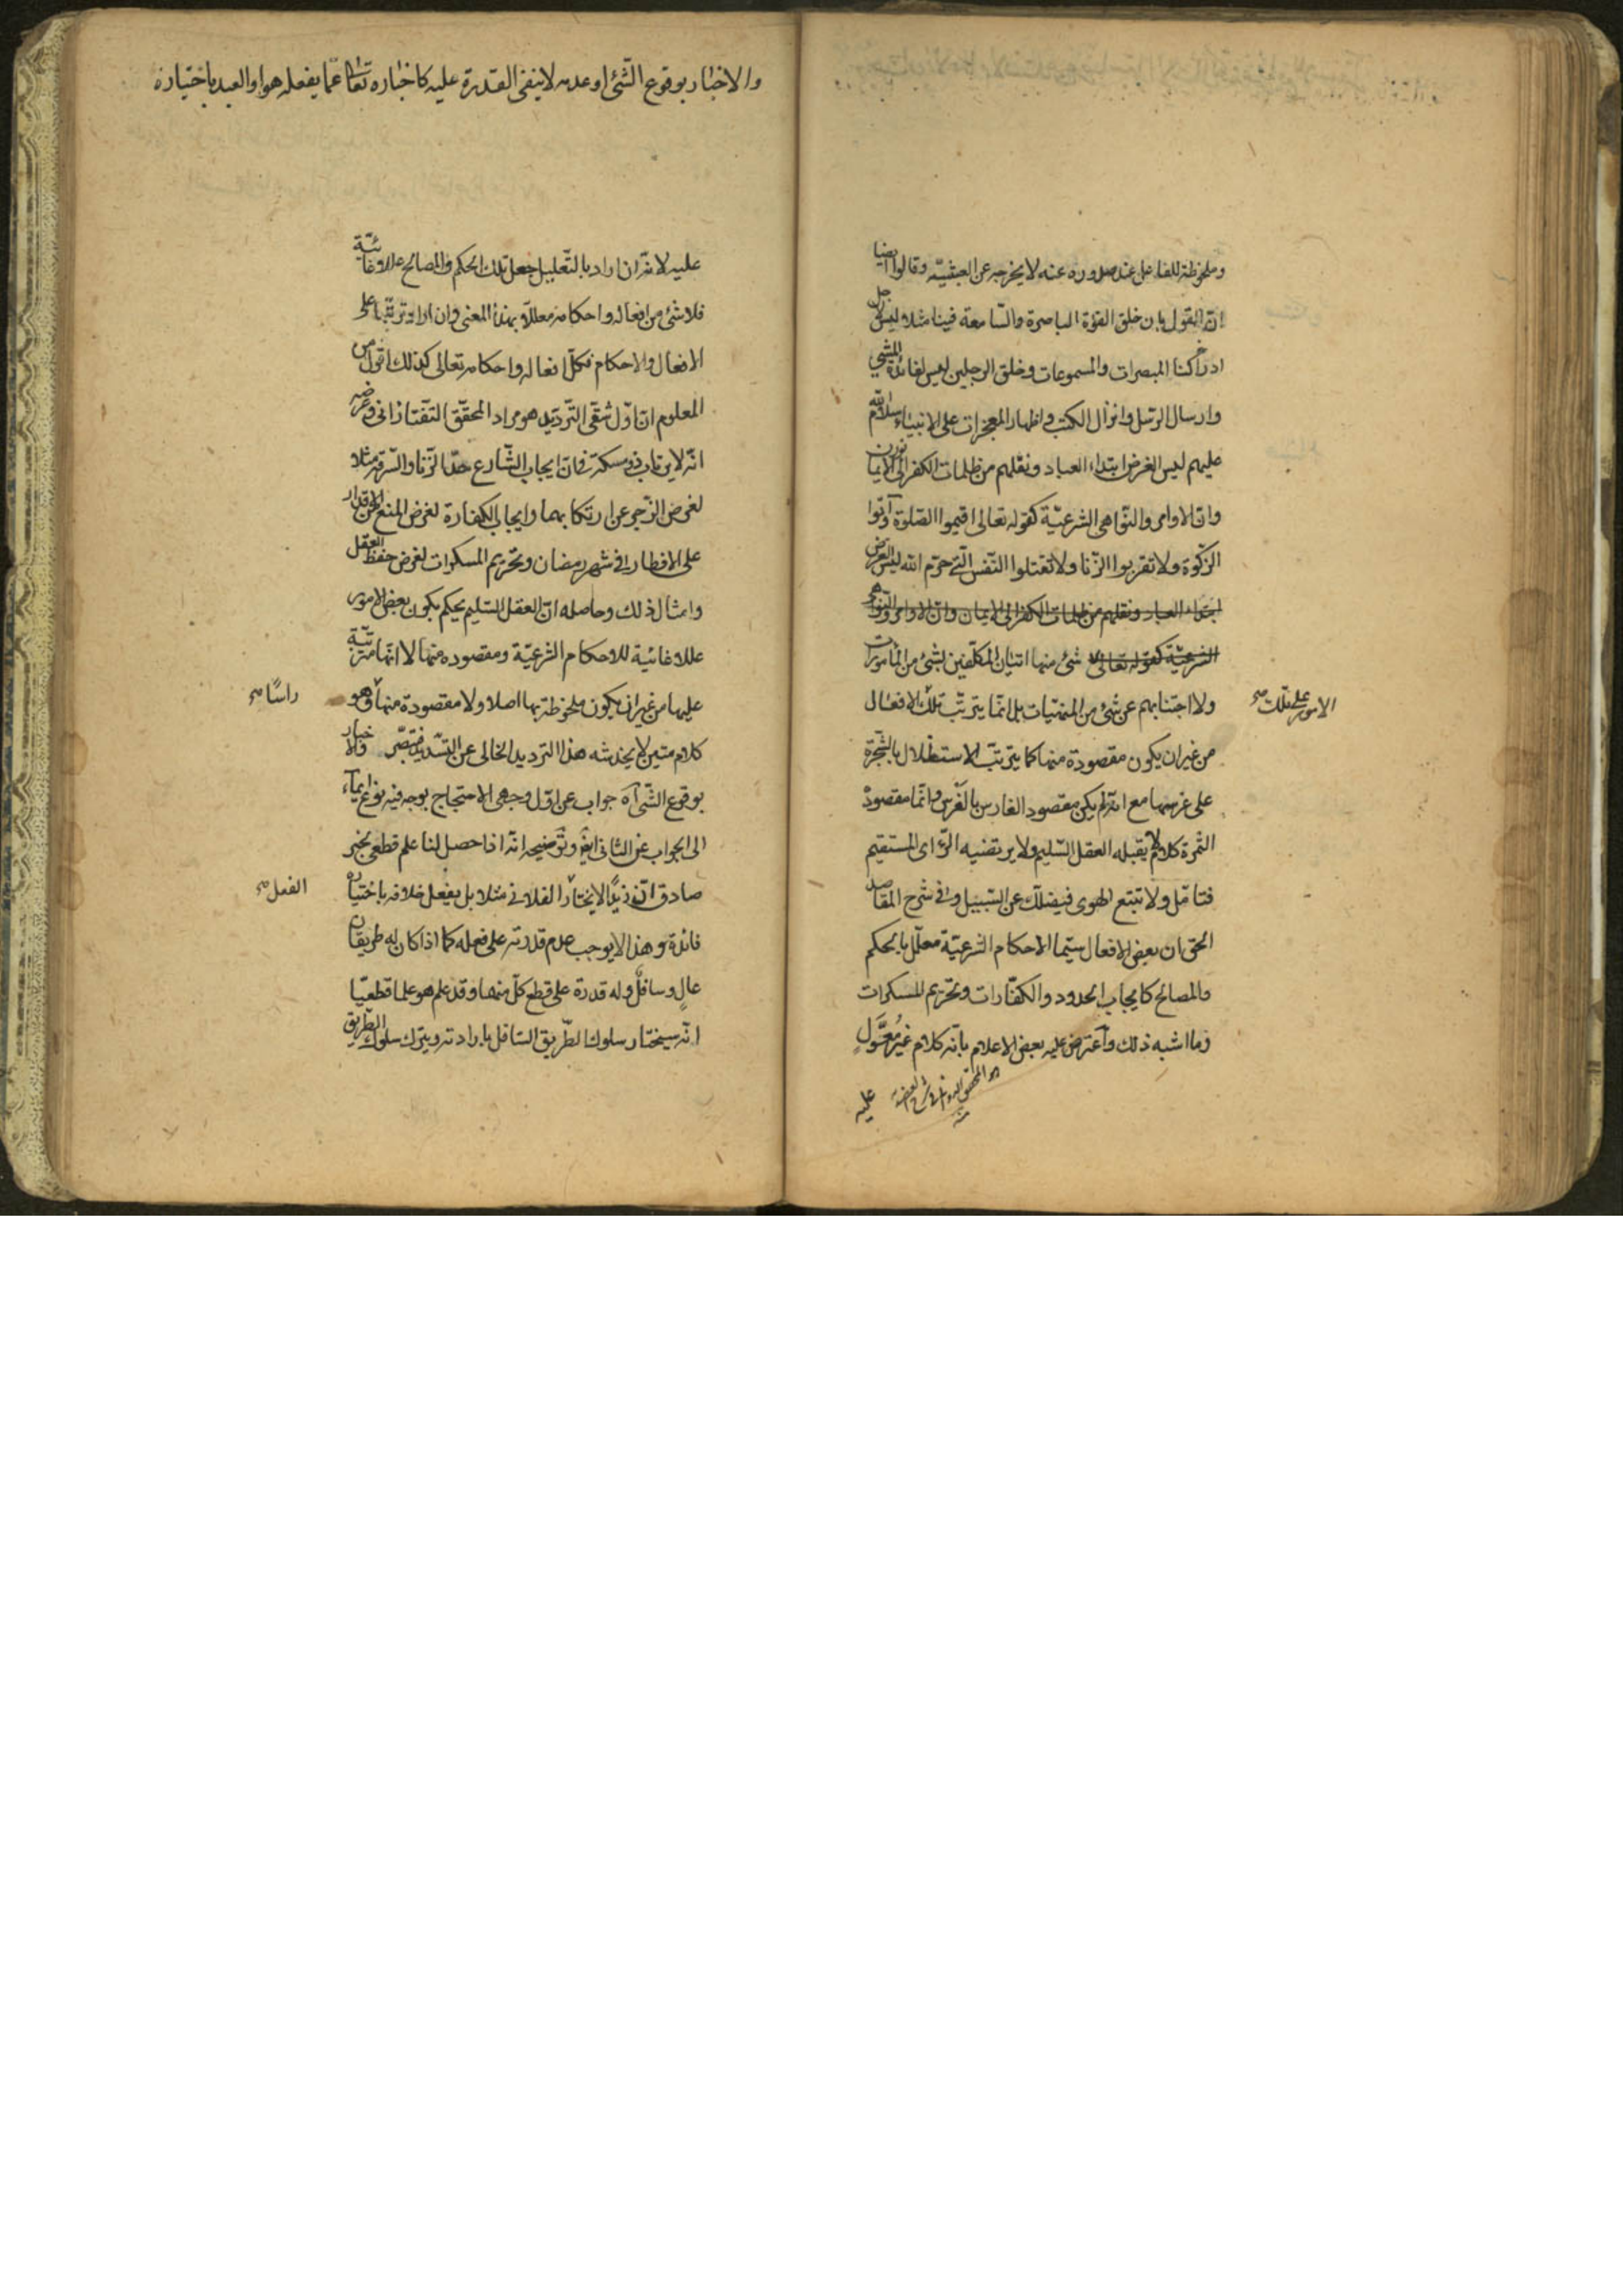 وملحوظة للفاعل عند صدوره عنه لا يخرجه عن العبثيّة وقالوا ايضا
انّ القول بان خلق القوّة الباصرة والسّامعة فينا مثلا ليس لاجل
ادراكنا المبصرات والمسموعات وخلق الرجلين ليس لفائدة المشي
وارسال الرّسل وانزال الكتب واظهار المعجزات على الانبياء سلام الله
عليهم ليس الغرض اهتداء العباد ونقلهم من ظلمات الكفر الى نور الايمان
وانّ الاوامر والنّواهي الشرعيّة كقوله تعالى اقيموا الصّلوة وآتوا
الزّكوة ولا تقربوا الزّنا ولا تقتلوا النّفس الّتي حرّم الله ليس الغرض
اهتداء العباد ونقلهم من ظلمات الكفر الى الايمان وانّ الاوامر والنّواهي
الشرعيّة كقوله تعالى لا شئ منها اتيان المكلّفين بشئ من المأمورات
ولا اجتنابهم عن شئ من المنهيّات بل انّما يترتّب تلك الافعال
الامور على تلك صح
من غير ان يكون مقصودة منها كما يترتّب الاستظلال بالشّجرة
على غرسها مع انّه لم يكن مقصود الغارس بالغرس وانّما مقصوده
الثّمرة كلام لا يقبله العقل السّليم ولا يرتضيه الرّاى المستقيم
فتأمّل ولا تتبع الهوى فيضلّك عن السّبيل وفي شرح المقاصد
الحق ان بعض الافعال سيّما الاحكام الشرعيّة معلّل بالحكم
والمصالح كايجاب الحدود والكفّارات وتحريم المسكرات
وما اشبه ذلك واعترض عليه بعض الاعلام بانّه كلام غير مُعَوَّلٍ
هو المحقق الدواني في شرح العضدية
منه
عليه
والاخبار بوقوع الشّئ او عدمه لا ينفي القدرة عليه كاخباره تعالى عمّا يفعله هو او العبد باختياره
عليه لانّه ان اراد بالتّعليل جعل تلك الحكم والمصالح عللا وغائيّة
فلا شئ من افعاله واحكامه معللا بهذا المعنى وان اراد ترتّبها على
الافعال والاحكام فكلّ افعاله واحكامه تعالى كذلك اقول من
المعلوم انّ اوّل شقّي التّرديد هو مراد المحقّق التّفتازاني وغرضه
انّه لا يرتاب ذو مسكة في انّ ايجاب الشّارع حدّ الزّنا والسّرقة مثلا
لغرض الزّجر عن ارتكابهما وايجاب الكفّارة لغرض المنع عن الاقدار
على الافطار في شهر رمضان وتحريم المسكرات لغرض حفظ العقل
وامثال ذلك وحاصله انّ العقل السّليم يحكم بكون بعض الامور
عللا غائية للاحكام الشرعيّة ومقصوده منها لا انّها مترتّبة
عليها من غير ان يكون ملحوظة بها اصلا ولا مقصودة منها وهو
راسًا صح
كلام متين لا يخدشه هذا الترديد الخالى عن التّسديد فتبصّر والاخبار
بوقوع الشّئ آه جواب عن اوّل وجهى الاحتجاج بوجه فيه نوع ايماء
الى الجواب عن الثاني ايضا وتوضيحه انّه اذا حصل لنا علم قطعي بخبر
صادق انّ زيدًا لا يختار الفلاني مثلا بل يفعل خلافه باختياره
الفعل صح
فائدة وهذا لا يوجب عدم قدرته على فعله كما اذا كان له طريقان
عالٍ وسافلٌ وله قدرة على قطع كلّ منهما وقد علم هو علما قطعيّا
انّه سيختار سلوك الطّريق السّافل بارادته ويترك سلوك الطّريق